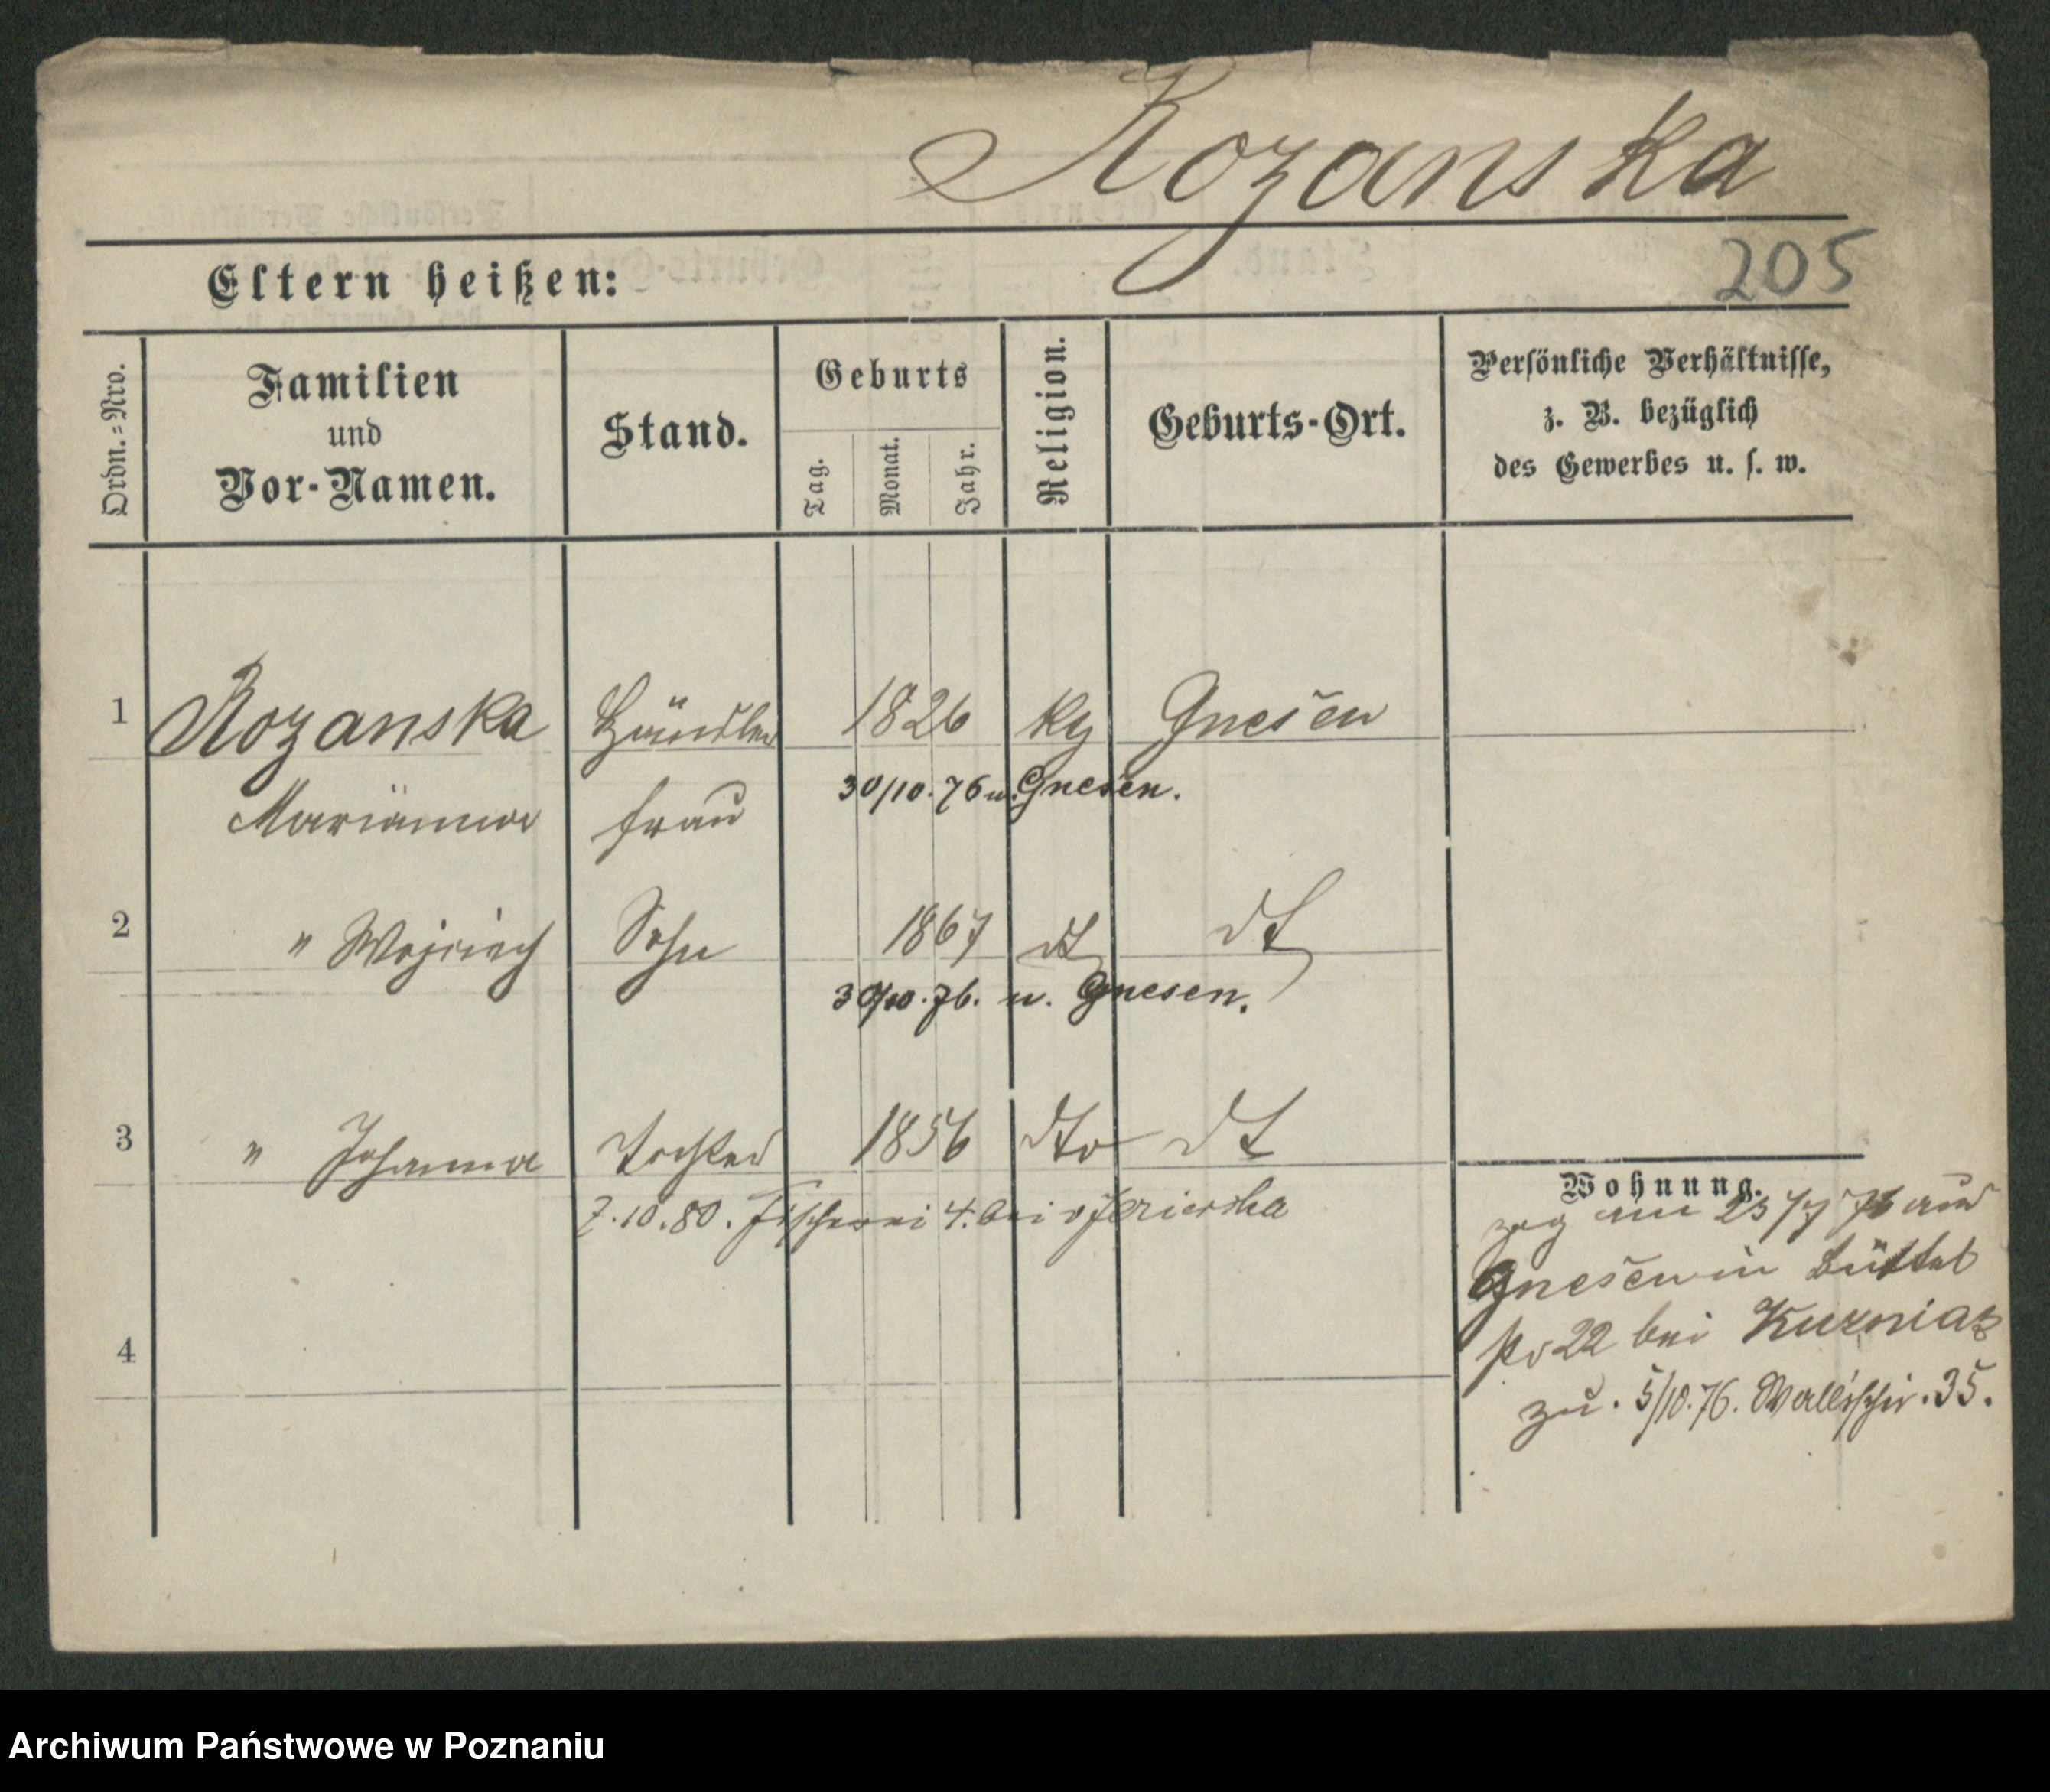 Rozanska
205
Eltern heißen:
Ordn.=Nro.
Familien
und
Vor-Namen.
Stand.
Geburts
Tag.
Monat.
Jahr.
Religion.
Geburts-Ort.
Persönliche Verhältnisse,
z. B. bezüglich
des Gewerbes u. s. w.
1 Rozanska Händler 1826 Kg Gnesen
Marianna frau 30/10. 76 u. Gnesen.
2 " Wojciech Sohn 1867 dt dt
30/10. 76. u. Gnesen.
3 " Johanna Tochter 1856 dto dt
7.10.80. Fischerei 4. bei
4
Wohnung.
zog am 23/7 76 aus
Gnesen in Büttel
22 bei Kurniak
zu. 5/10. 76. Wallischei. 35.
Archiwum Państwowe w Poznaniu